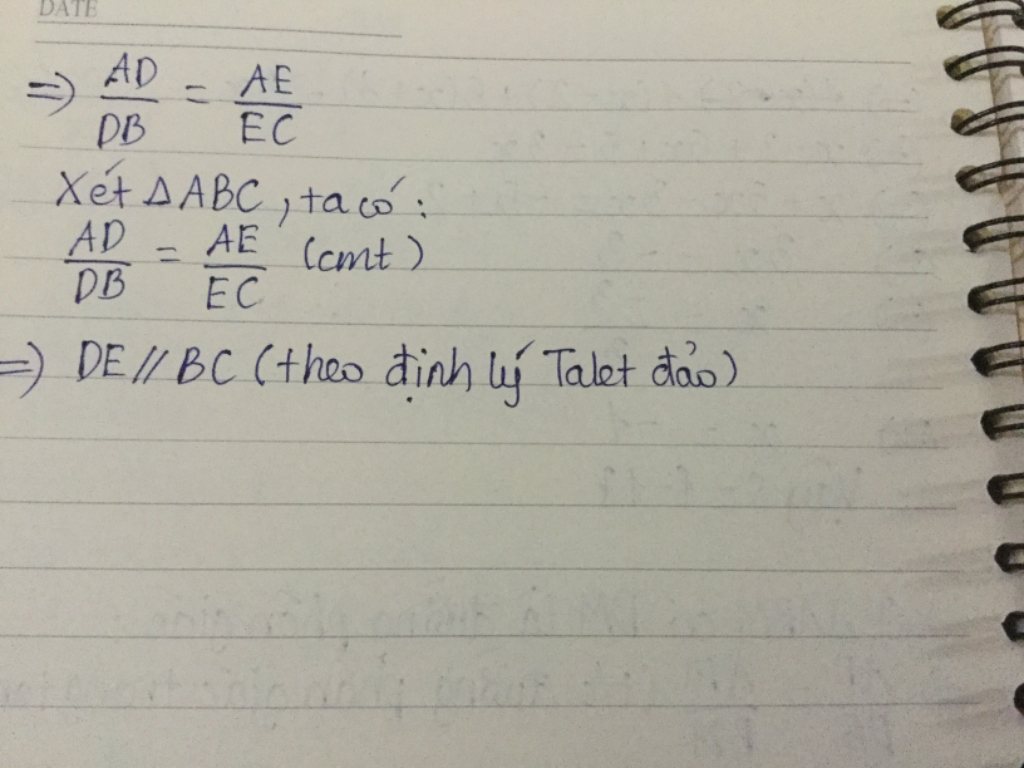 DATE
=> AD/DB = AE/EC
Xét Δ ABC, ta có:
AD/DB = AE/EC (cmt)
=> DE // BC (theo định lý Talet đảo)